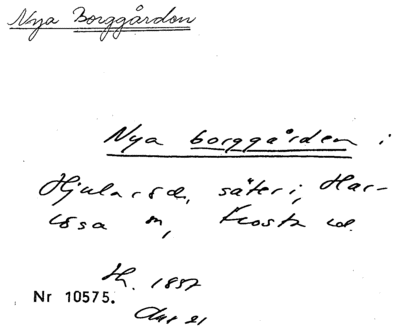 Nya Borggården
Nya borggården i
Hjularöds, säteri, Har-
lösa sn, Frosta hd.
H. 1857
Nr 10575.